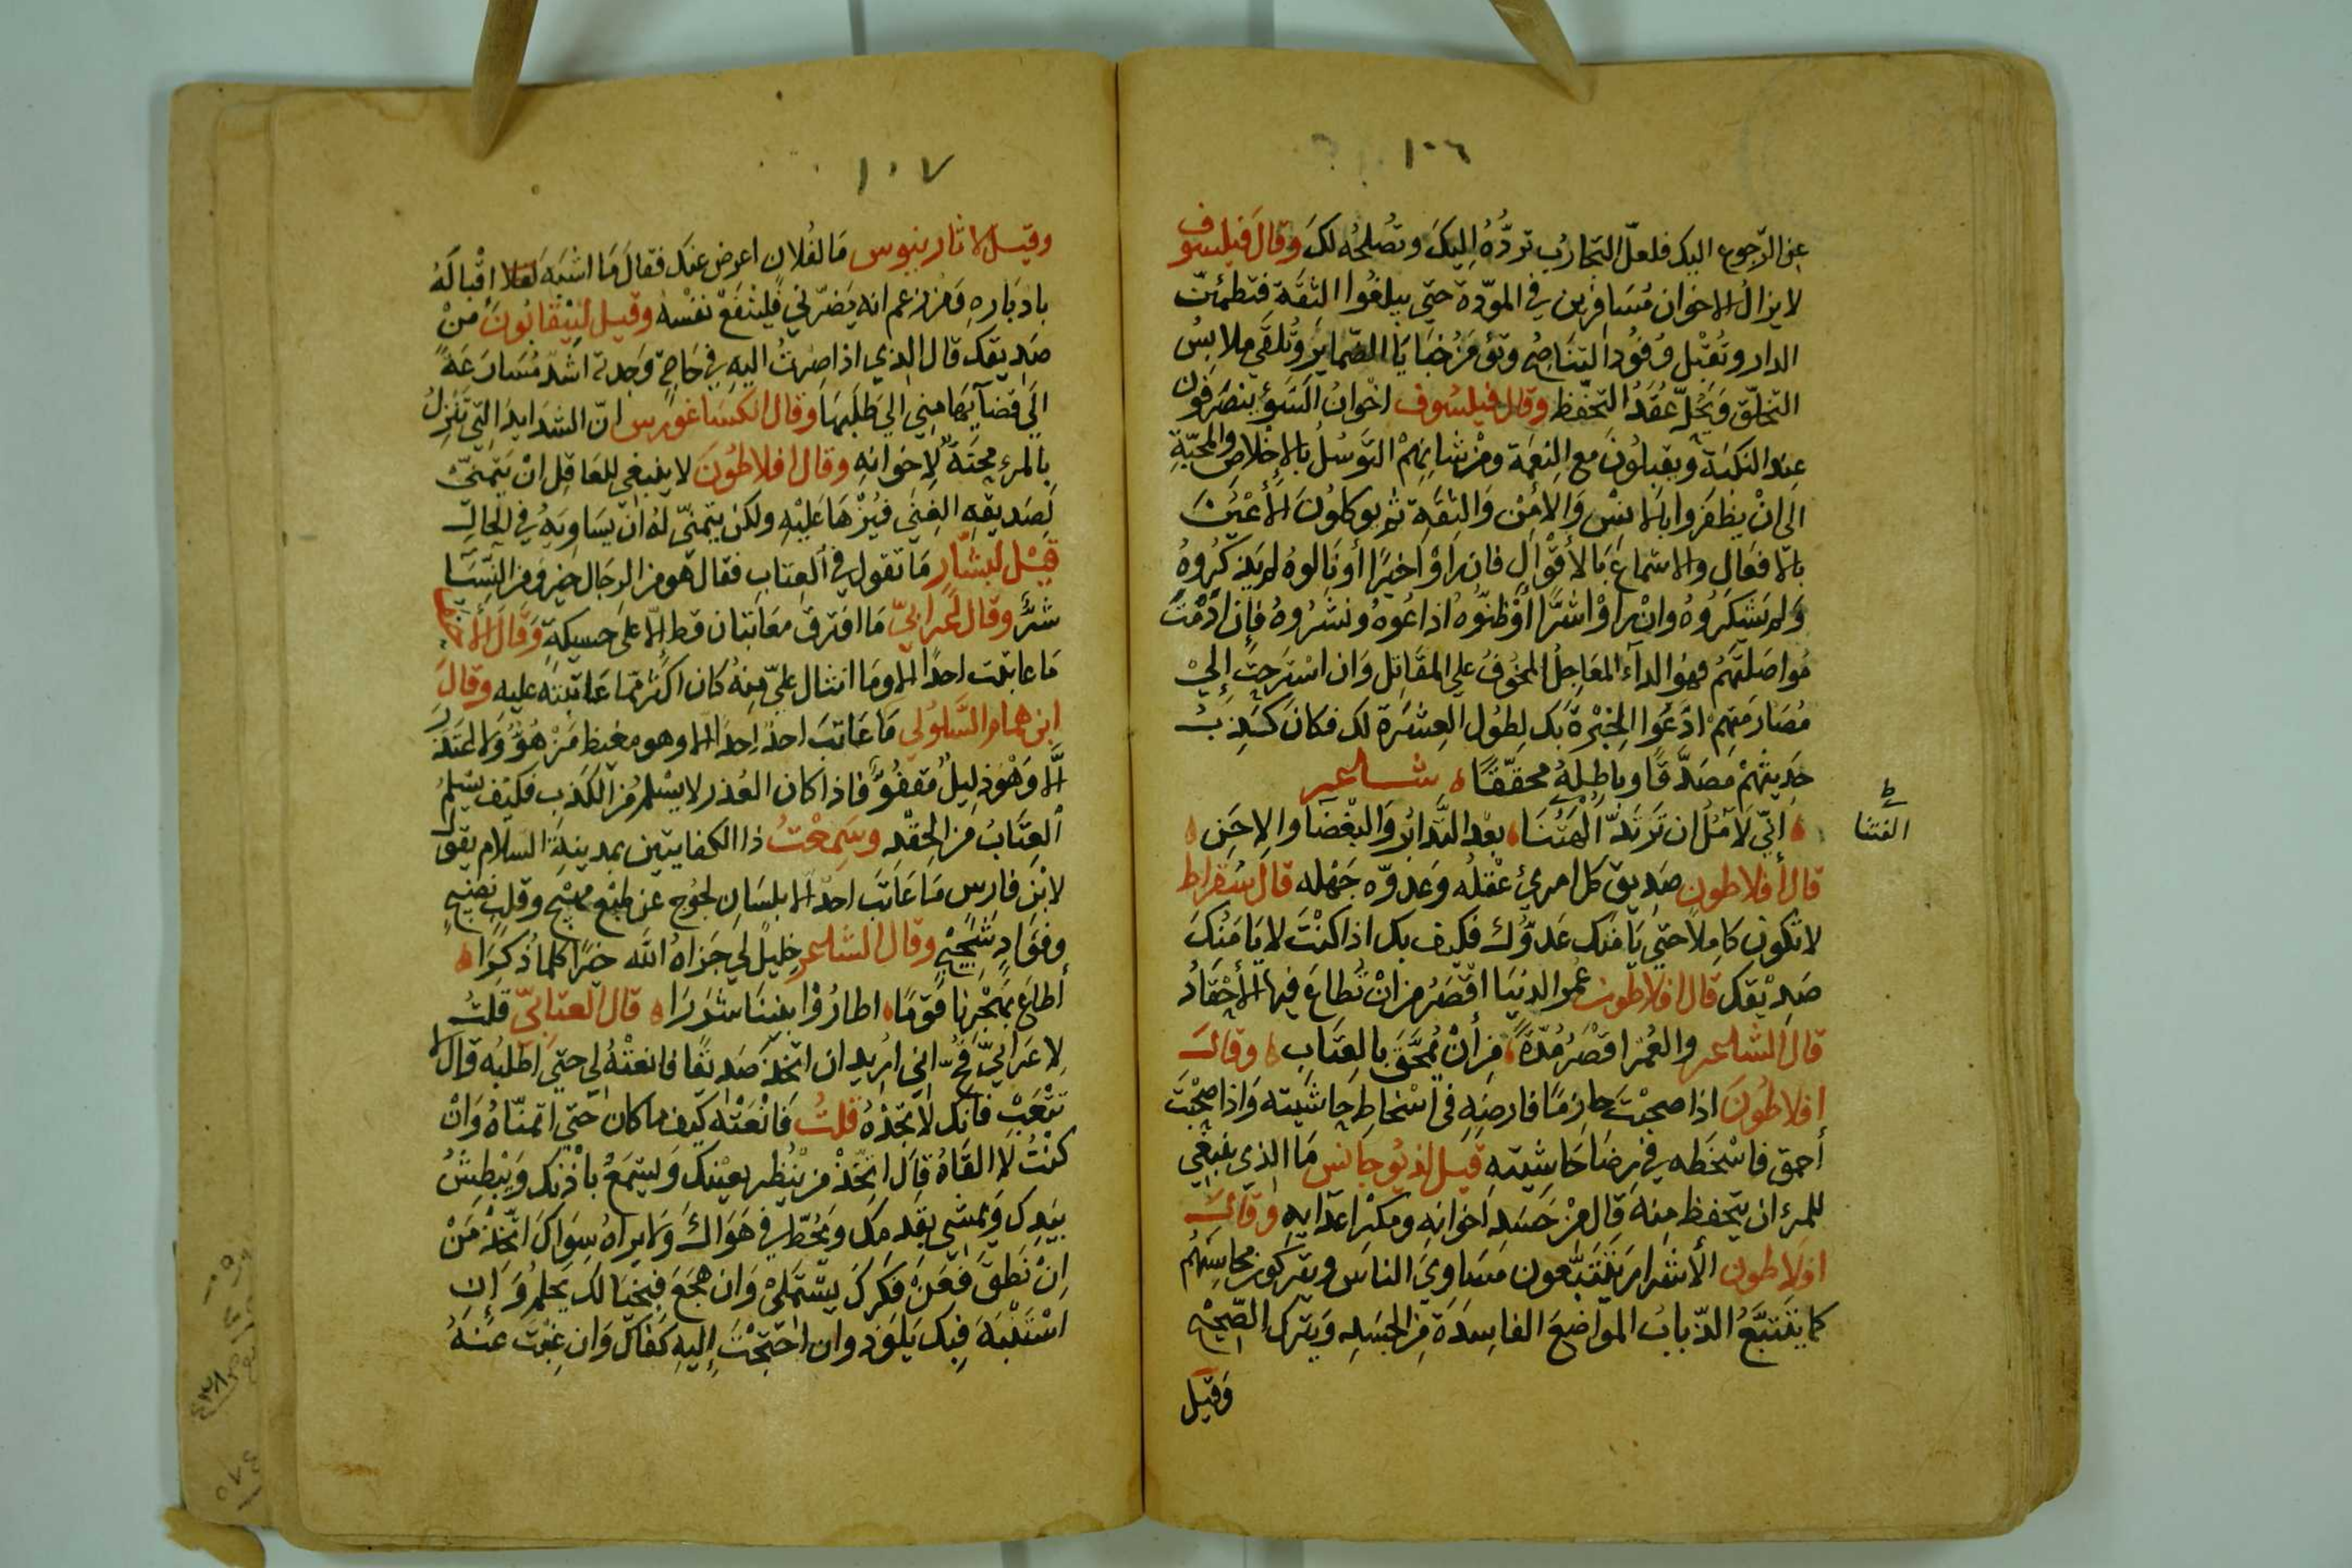 ١٠٦
عن الرجوع اليك فلعلّ التجارب تردُّهُ اليكَ وتُصلحُه لكَ وقالَ فيلسوف
لا يزالُ الاخوان مُسَافرين في المودّة حتى يبلغُوا الثقَة فتطمئنّ
الدار وتُقبْل وُفُودُ التنَاصُح وتؤمَنُ خبَايَا الضمايِر وتُلقَى ملابسُ
التخلّق وَتُحَلّ عُقَدُ التحفّظ وقال فيلسُوف اخوانُ السَّوْءِ ينصَرفُون
عند النكبَة ويقبلُونَ مع النِعمَة ومن شانِهمْ التوَسُّلُ بالاِخْلاصِ والمحبّة
الى انْ يظفَروا بالانسِ وَالامْنِ وَالثقَةِ ثم يوكلُونَ الأَعْيُنَ
بالافعَالِ والاسْماعَ بَالاَقْوَالِ فان رَاوْا خيرًا أو نَالوهُ لم يذكرُوهُ
وَلم يَشكرُوهُ وانْ رَاوْا شرًّا أوْظنّوُه اذاعُوهُ ونشرُوهُ فإن ادَمْتَ
مُواصَلتَهُمْ فهوُ الداءُ المعَاجِلُ المخُوفُ على المقَاتِل وَان اسْتَرحتَ إلى
مُصَارمَتِهِمْ ادّعَوا الخِبْرَةَ بَك لِطُول العِشرَة لك فكانَ كَذِبُ
حَدِيثهْم مصَدَّقًا وباطِلهُ محَقّقًا ٥ شاعر
٥ إنّي لَآمُلُ ان تَرتَدَّ الفَتُنَا ٥ بعْد التّدَابُر وَالبغْضَا والاِحَنِ ٥
الفتنا
قالَ أفلاطون صَديق كل امرئ عقْلُه وَعَدوّه جَهْله قالَ سُقراط
لا تكون كَامِلاً حتى يَأمَنك عَدوُّكَ فكيف بك اذا كنْتَ لا يَأمَنُكَ
صَدِيْقك قالَ افلاطون عمر الدنيَا اقصَرُ من انْ تُطاعَ فيها الأحْقَادُ
قالَ الشاعر والعُمْر اقصَرُ مُدّةً ٥ مِن أنْ يُمَحَّقَ بالعِتَابِ ٥ وقالَ
افلاطُونَ اذا صحبْتَ حازمًا فارضِهِ في اسْخاطِ حاشيَته وَاذا صحبْتَ
أحمق فاسْخَطه في رضَا حَاشيته قيل لذيوجَانس مَا الذي ينبَغي
للمرءِ ان يتحفظ منهَ قَالَ مِنْ حَسَدِ اخوَانِه ومكر اعدَايهِ وقالَ
افلاطون الأشرار يتتَبَّعون مَسَاوي الناس ويتركون محاسِنَهُم
كما يتَتبَّعُ الذبابُ المواضعَ الفاسِدَةَ من الجسَد ويَترك الصّحيحَ
وَقيل
١٠٧
وقيل لاثارينيوس مَا لفُلانٍ اعرض عنك فقالَ مَا اشبَه اِقْبَالَهُ
بادبَارهِ فمن زعم انه يَضرّني فليَنْفَعْ نَفْسَه وقيل لبيتقانونَ مَنْ
صَديقك قالَ الذي اذا صِرتُ اليهِ في حَاجةٍ وَجدته اشدّ مُسَارَعَةً
إلى قضآيهَا مِني الى طلبهَا وقال انكسَاغورَس انّ الشدَايدَ التي تَنزلُ
بِالمرءِ محِنَةٌ لاِخوانِهِ وقال افلاطوُنَ لا ينبغي للعَاقل انْ يَتمنّىَ
لصَديقهِ الغِنَى فيُزهَا عَليْهِ ولكن يتمنّى لهُ انْ يسَاوِيهُ في الحَالِ
قيْلَ لبشّار مَا تقولُ في العِتابِ فقالَ هو من الرجَال خير ومن النّسَا
شرٌّ وقال أعرابيّ مَا افترق مُعَاتبَان قط إلاّ على حسيكةٍ وَقالَ الأخر
مَا عاتبتَ احدًا الا ومَا انثال عليّ مِنهُ كانَ اكثر ممّا عَاتبتَه عليه وقالَ
ابن همام السَّلُولي مَا عَاتبَ احدٌ احَدًا الا وهو مغيظ مَزْهُوٌّ وَلا اعتَذرَ
الّا وَهْوَ ذِليلٌ مُقفُوٌّ فاذا كان العُذر لا يسْلمُ من الكذِب فكيف يسْلمُ
العِتَابُ من الحِقْدِ وسَمِعْتُ ذا الكفايتَين بمدينَة السلام يقول
لابْن فارس مَا عَاتَبَ احدٌ الا بلسَانٍ لجُوج عن طبْعٍ وقلبٍ نَضِيجٍ
وفؤَادٍ شَجِيٍّ وقالَ الشاعر خليل لي جَزاهُ الله خيرًا كلما ذُكِرَا ٥
أطاعَ بهَجْرِنا قَومًا ٥ اطارُوْا بيننَا شَرَرَا ٥ قالَ العتابيّ قلتُ
لاِعرَابيّ قحٍّ اني اريد ان اتخذَ صَديقًا فانعَتْهُ لي حتى اطلبُه قال لا
تتْعَبْ فانّك لا تجدُهُ قلتُ فَانْعَتْه كيف مَا كان حتى اتمنّاهُ وَانْ
كنْتُ لا القَاهُ قالَ اتّخذْ من يَنْظر بعَيْنك وَيسْمَعُ باُذنك وَيَبْطِشُ
بيَدِكَ وَيمْشي بقدمِك وَيحُطّ في هَوَاكَ وَلا يراهُ سِوَاك اتّخذ مَنْ
انْ نَطَقَ فعَنْ فِكركَ يَسْتَملي وَان هجَع فبخيَالك يَحلمُ وَإن
اسْتَنْبَهَ فبِك يَلوذ وان احتَجْتَ إليهِ كفَاك وَان غِبْتَ عنهُ